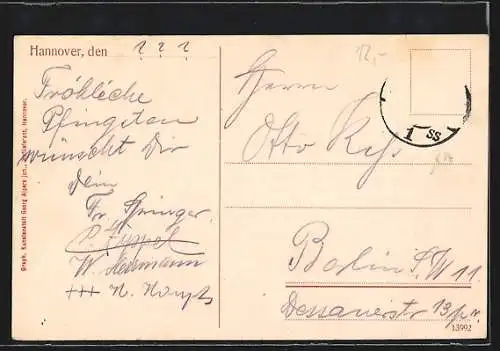 Hannover, den ? ? ?
Fröhliche
Pfingsten
wünscht Dir
Dein
Fr. Springer.
W. Herrmann
+++ H. Haupt
Graph. Kunstanstalt Georg Alpers jun., Hannover.
12,-
Herrn
Otto
1 SS
Berlin S.W 11
Dessauerstr 13 pr.
13992